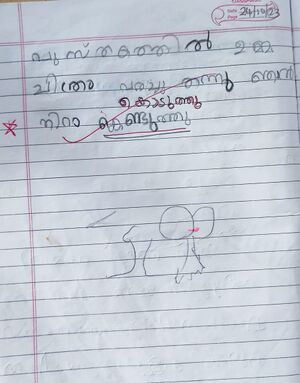 Date 24/10/23
Page
പുസ്തകത്തിൽ ഉള്ള
ചിത്രം വരച്ചു തന്നു ഞാൻ
കൊടുത്തു
നിറം കെണ്ടുത്തു